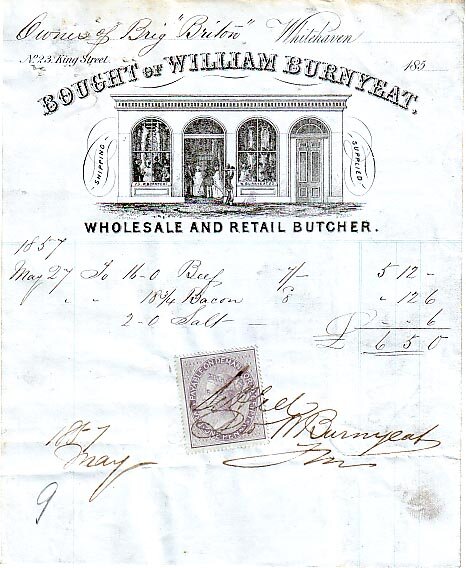 Owners of Brig "Briton" Whitehaven
No. 23, King Street. 185
BOUGHT OF WILLIAM BURNYEAT,
SHIPPING SUPPLIED
WHOLESALE AND RETAIL BUTCHER.
1857
May 27 To 16-0 Beef 7/- 5 12 -
" " 18¾ Bacon 8 " 12 6
2-0 Salt - - - 6
£ 6 5 0
PAYABLE ON DEMAND OR
Settled
W Burnyeat
1857
May
9